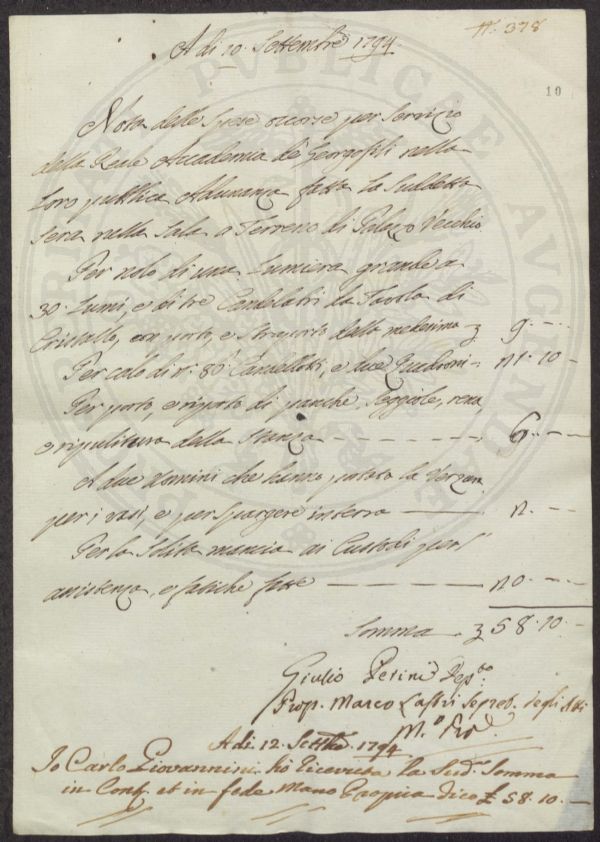 №. 378
A di 10. Settembre 1794.
10
Nota delle Spese occorse per Servizio
della Reale Accademia de Georgofili nella
Loro pubblica Adunanza fatta la Suddetta
Sera nella Sala a Terreno di Palazzo Vecchio
Per nolo di una Lumiera grande a
30. Lumi, e di tre Candelabri da Tavola di
Cristallo, con porto, e riporto della medesima 9
Per calo di n. 80 Candellotti, e due Quadroni 10
Per porto, e riporto di panche, Seggiole, rena,
e ripulitura della Stanza 6
A due Uomini che hanno portato la Verzura
per i vasi, e per Spargere in terra
Per la Solita mancia ai Custodi per l'
assistenza, e fatiche fatte
Somma 58.10
Giulio Perini Dep.to
Prop. Marco Lastri Segret. degli Atti
A di 12. Settbre. 1794
Io Carlo Giovannini hò Ricevuta la Sud.a Somma
in Cont. et in fede Mano Propria dico £ 58.10
PUBLICAE
AUGENDAE